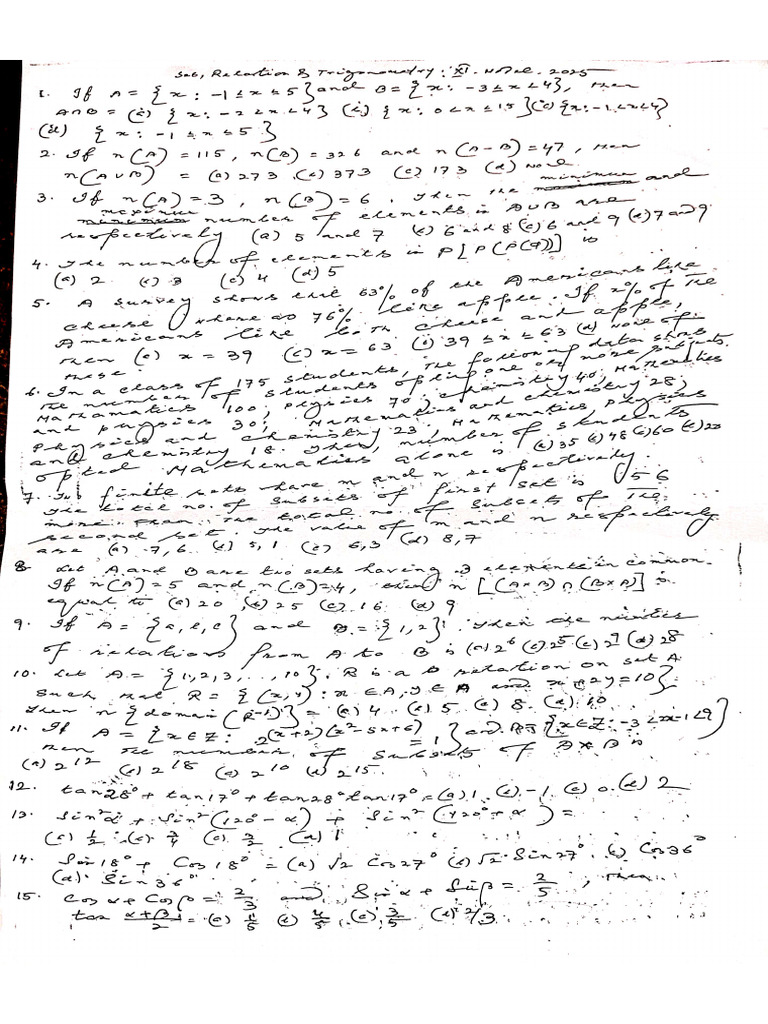 Set, Relation & Trigonometry: XI. 2025
1. If A = {x: -1 ≤ x ≤ 5} and B = {x: -3 ≤ x < 4}, then
A∩B = (i) {x: -2 < x < 4} (ii) {x: 0 < x ≤ 15} (c) {x: -1 < x < 4}
(d) {x: -1 ≤ x ≤ 5}
2. If n(A) = 115, n(B) = 326 and n(A-B) = 47, then
n(A∪B) = (a) 273 (b) 373 (c) 173 (d) None
3. If n(A) = 3, n(B) = 6. Then the minimum and
maximum number of elements in A∪B are
respectively (a) 5 and 7 (b) 6 and 8 (c) 6 and 9 (d) 7 and 9
4. The number of elements in P[P(P(φ))] is
(a) 2 (b) 3 (c) 4 (d) 5
5. A survey shows that 63% of the Americans like
cheese whereas 76% like apple. If x% of the
Americans like both cheese and apple,
then (a) x = 39 (b) x = 63 (c) 39 ≤ x ≤ 63 (d) None of
these.
6. In a class of 175 students, the following data shows
the number of students opting one or more subjects.
Mathematics 100; physics 70; chemistry 40; Mathematics
and physics 30; Mathematics and chemistry 28;
physics and chemistry 23; Mathematics physics
and chemistry 18. Then, number of students
opted Mathematics alone is (a) 35 (b) 48 (c) 60 (d) 20
7. Two finite sets have m and n respectively.
The total no. of subsets of first set is 56
more than the total no of subsets of the
second set. The value of m and n respectively
are (a) 7, 6 (b) 5, 1 (c) 6, 3 (d) 8, 7
8. Let A and B are two sets having 3 elements in common.
If n(A) = 5 and n(B) = 4, then n[(A×B)∩(B×A)] is
equal to (a) 20 (b) 25 (c) 16 (d) 9
9. If A = {a, b, c} and B = {1, 2}. Then the number
of relations from A to B is (a) 2⁶ (b) 2⁵ (c) 2⁷ (d) 2⁸
10. Let A = {1, 2, 3, ..., 10}. R is a relation on set A
such that R = {(x, y): x ∈ A, y ∈ A and x + 2y = 10}
then n{domain(R⁻¹)} = (a) 4 (b) 5 (c) 8 (d) 10
11. If A = {x∈Z: 2^(x+2)(x²-5x+6) = 1} and B = {x∈Z: -3 < 2x-1 < 9}
then the number of subsets of A×B is
(a) 2¹² (b) 2¹⁸ (c) 2¹⁰ (d) 2¹⁵
12. tan28° + tan17° + tan28° tan17° = (a) 1 (b) -1 (c) 0 (d) 2
13. Sin²α + Sin²(120° - α) + Sin²(120° + α) =
(a) 1/2 (b) 3/4 (c) 3/2 (d) 1
14. Sin18° + Cos18° = (a) √2 Cos27° (b) √2 Sin27° (c) Cos36°
(d) Sin36°
15. Cosα + Cosβ = 2/3 and Sinα + Sinβ = 2/5, then
tan (α+β)/2 = (a) 1/5 (b) 4/5 (c) 3/5 (d) 2/3